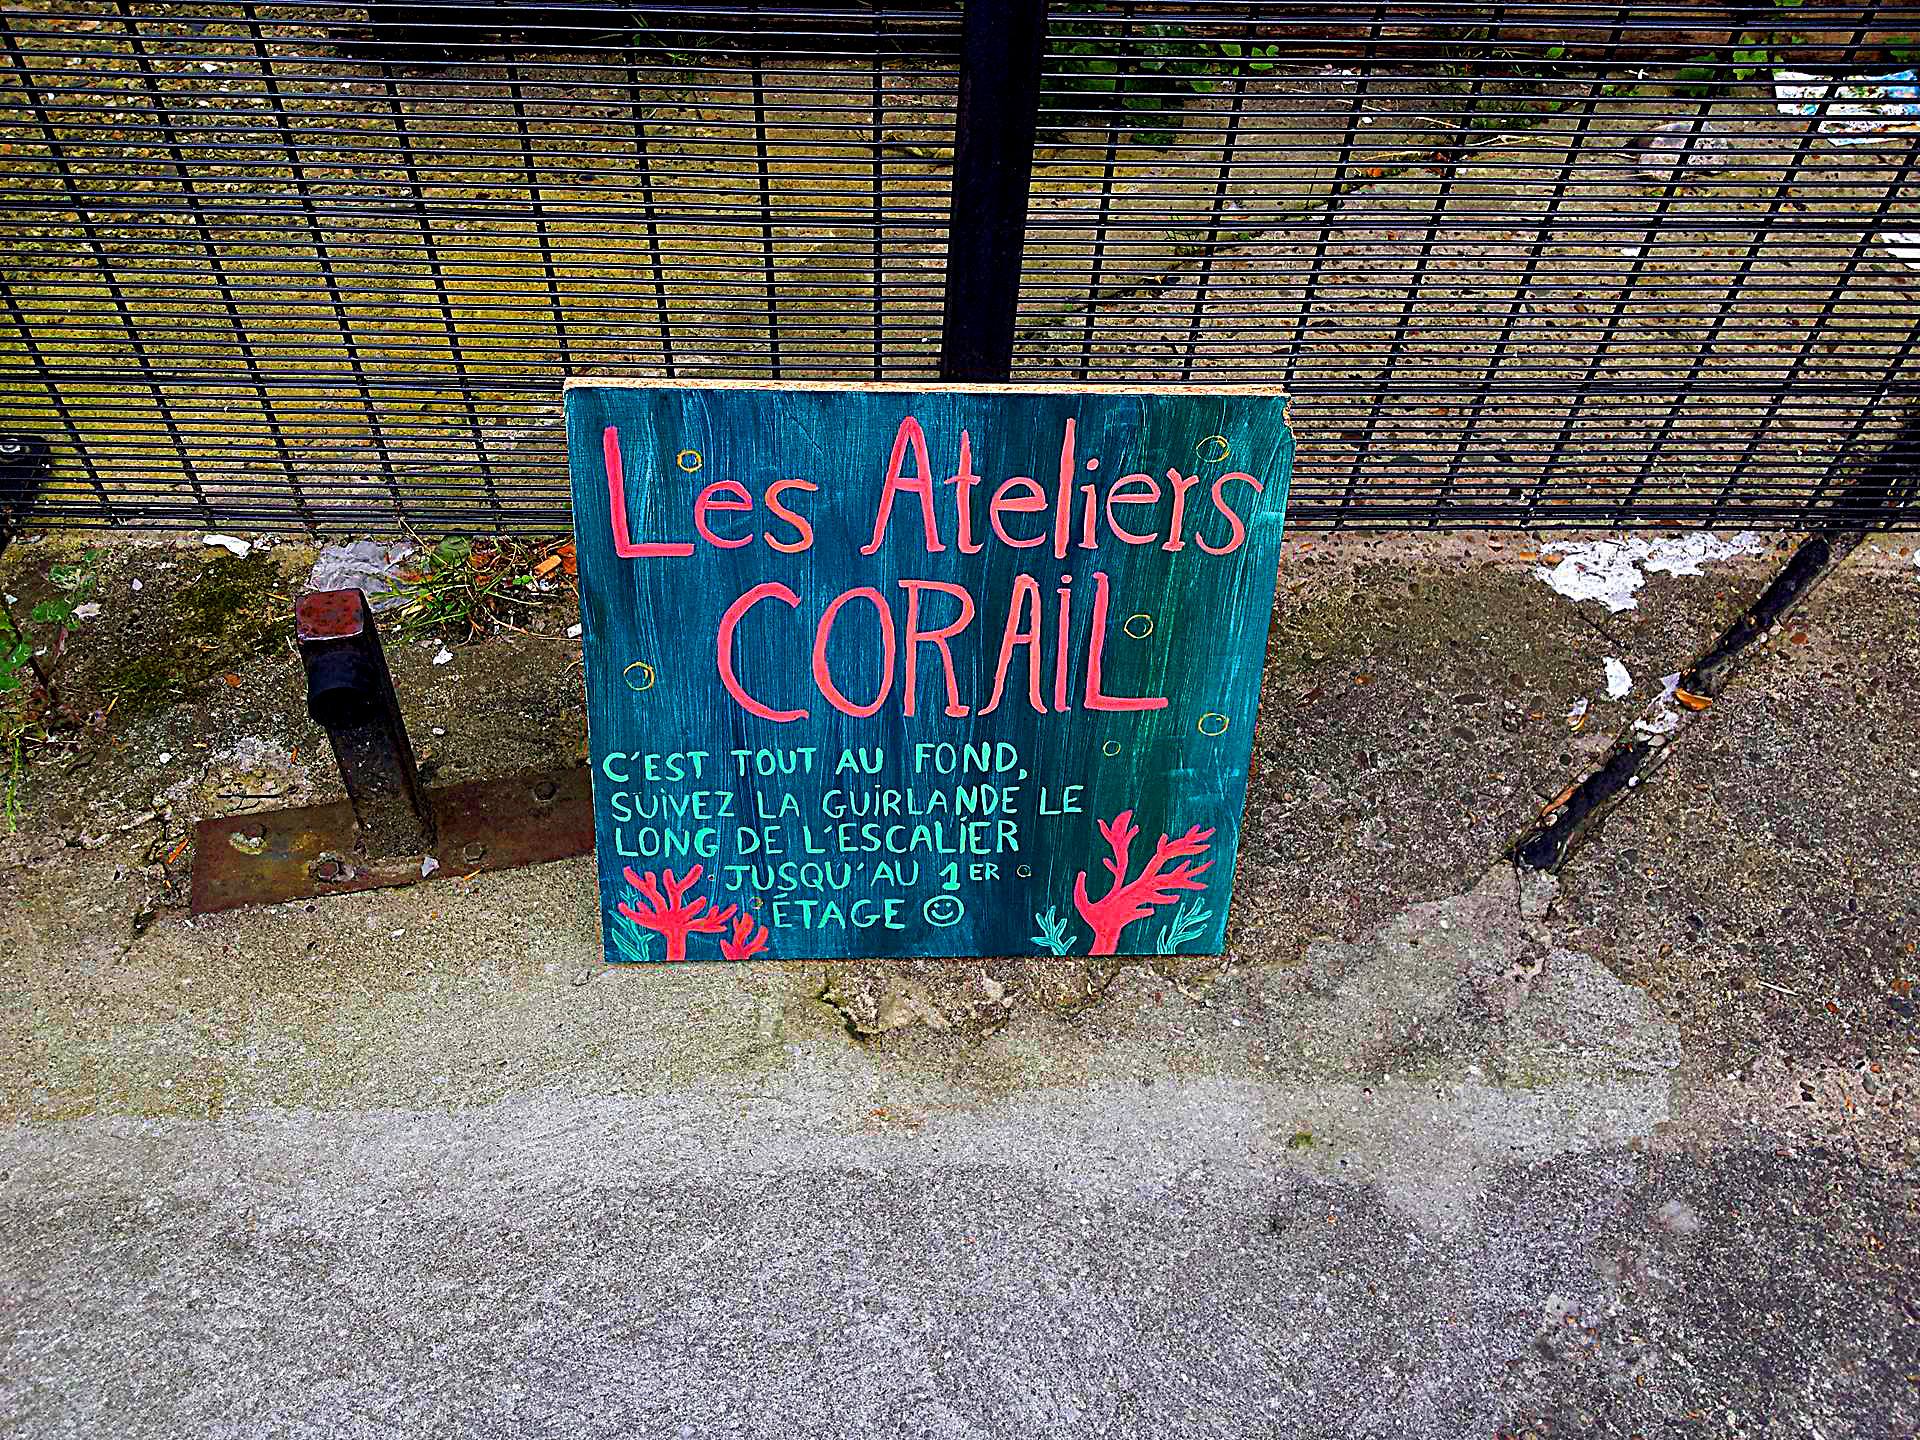 Les Ateliers
CORAiL
C'EST TOUT AU FOND,
SUiVEZ LA GUiRLANDE LE
LONG DE L'ESCALiER
JUSQU'AU 1ER
ÉTAGE ☺